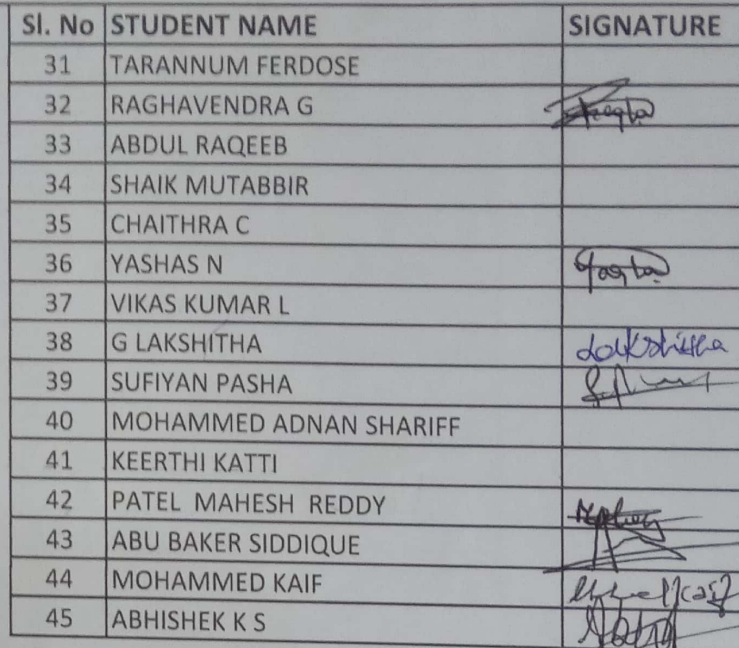 Sl. No STUDENT NAME SIGNATURE
31 TARANNUM FERDOSE
32 RAGHAVENDRA G
33 ABDUL RAQEEB
34 SHAIK MUTABBIR
35 CHAITHRA C
36 YASHAS N
37 VIKAS KUMAR L
38 G LAKSHITHA Lakshitha
39 SUFIYAN PASHA
40 MOHAMMED ADNAN SHARIFF
41 KEERTHI KATTI
42 PATEL MAHESH REDDY
43 ABU BAKER SIDDIQUE
44 MOHAMMED KAIF
45 ABHISHEK K S